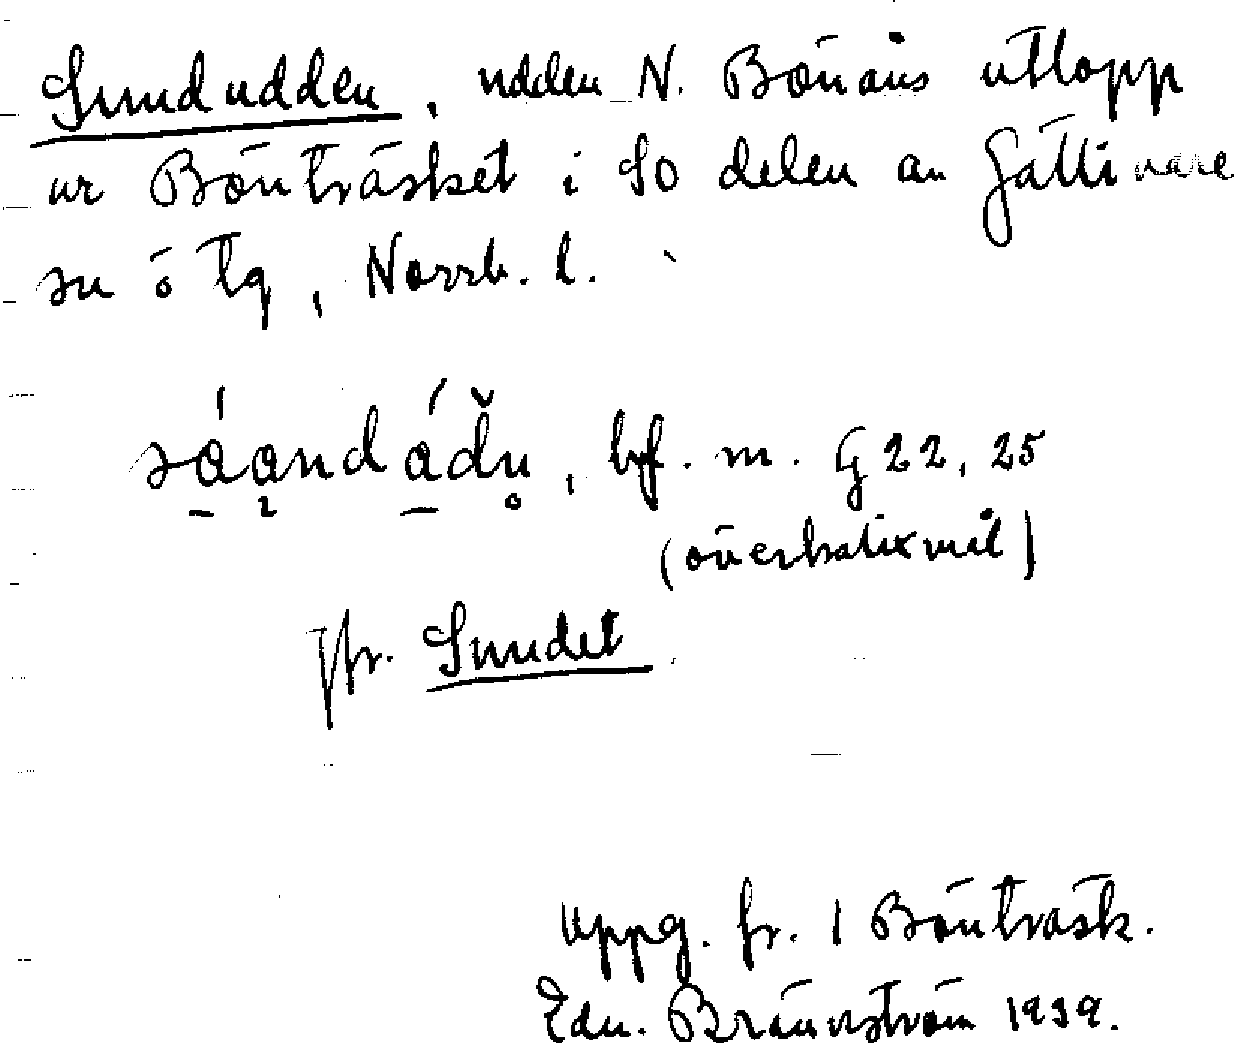 Sundudden, udden N. Bönåns utlopp
ur Bönträsket i SO delen av Gällivare
sn o tg, Norrb. l.
bf. m. G 22, 25
(överkalixmål)
Jfr. Sundet
Uppg. fr. i Bönträsk.
Edv. Brännström 1939.